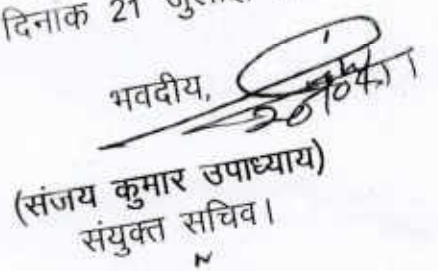 दिनाक 21
भवदीय,
(संजय कुमार उपाध्याय)
संयुक्त सचिव।
N